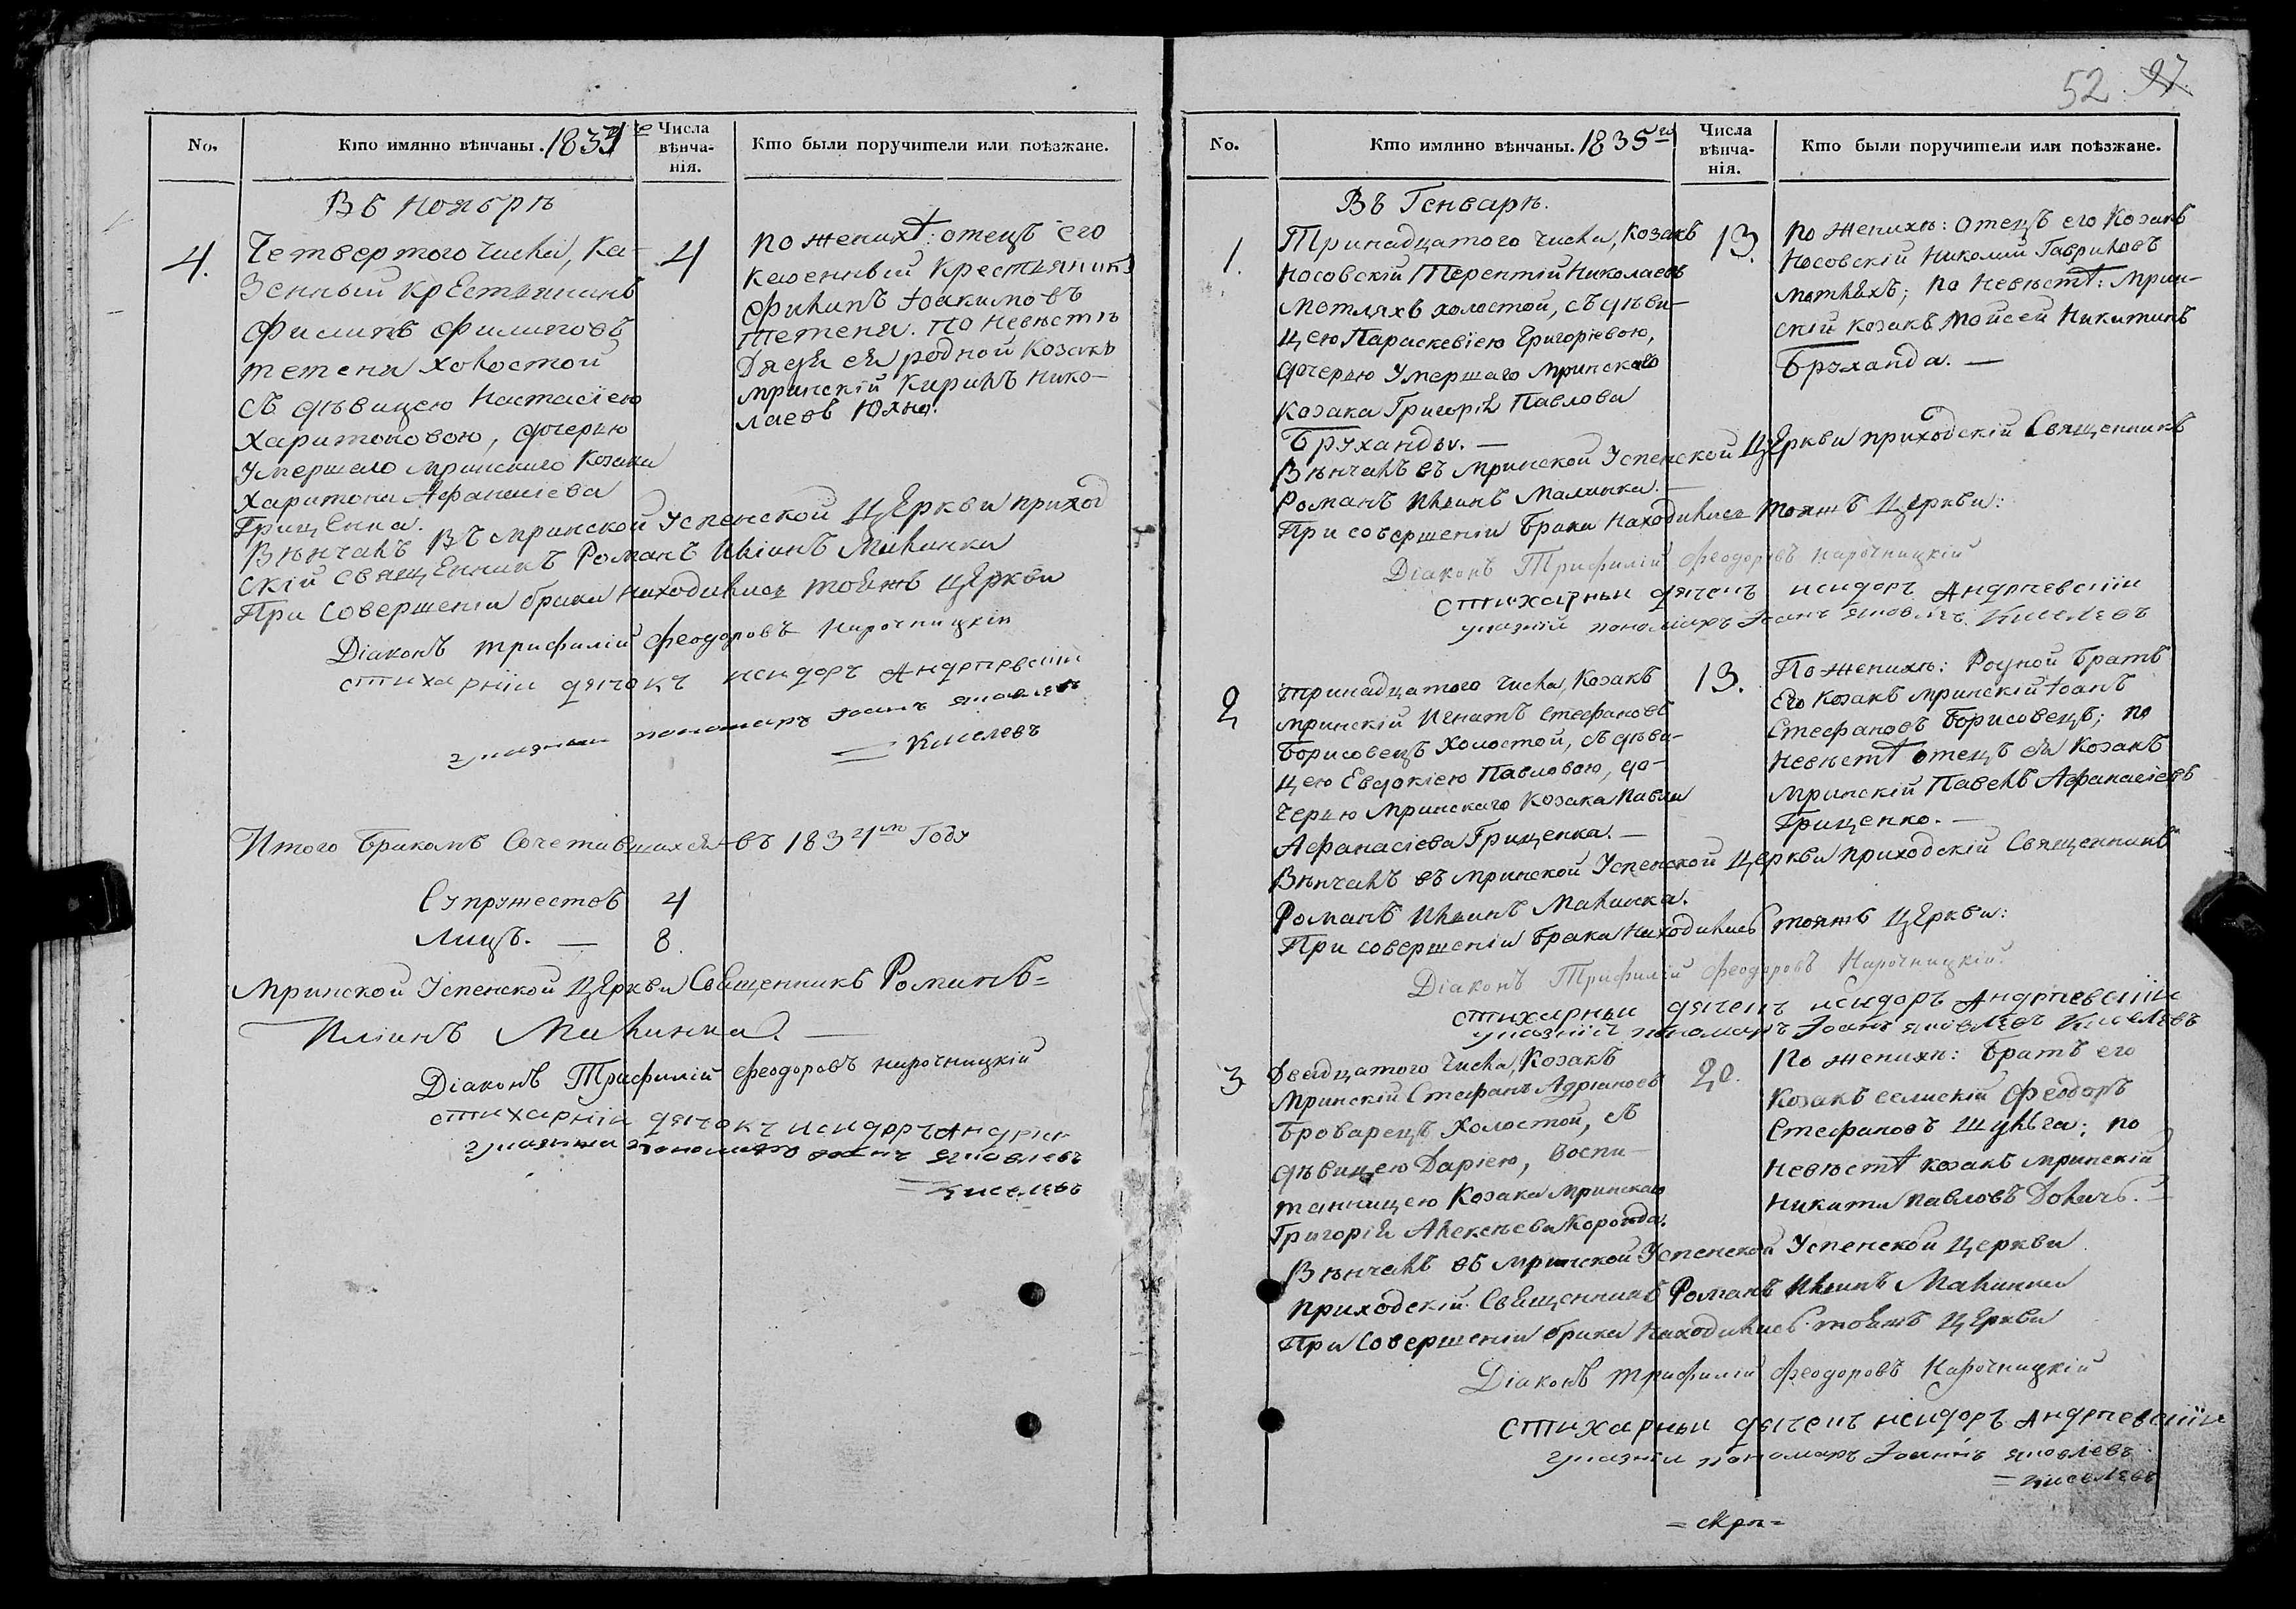 No.
Кто имянно вѣнчаны. 1834го
Числа вѣнча-нія.
Кто были поручители или поѣзжане.
Въ Ноябрѣ
4.
Четвертого числа, Ка-
зенный крестьянинъ
Филипъ Филиповъ
Тетеня холостой
съ дѣвицею Настасіею
Харитоновою, дочерью
умершаго мринскаго козака
Харитона Афанасіева
Грищенка.
4
По женихѣ: отецъ его
казенный крестьянинъ
Филипъ Іоакимовъ
Тетеня. По невѣстѣ
Дядя ея родной козакъ
мринскій Кирилъ Нико-
лаевъ Юхно.
Вѣнчалъ въ мринской Успенской Церкви приход
скій священникъ Романъ Иліинъ Малинка
При совершеніи брака находились тояжъ Церкви
Діаконъ Трифилій Феодоровъ Нарочницкій
стихарній дячокъ Исидоръ Андріевскій
указный пономаръ Іоанъ Яковлевъ
= Киселевъ
Итого браковъ сочетавшихся въ 1834мъ Году
Супружествъ 4
Лицъ. — 8.
Мринской Успенской Церкви Священникъ Романъ=
Иліинъ Малинка. —
Діаконъ Трифилій Феодоровъ Нарочницкій
стихарній дячокъ Исидоръ Андріев
указный пономаръ Іоанъ Яковлевъ
= Киселевъ
52. 97
No.
Кто имянно вѣнчаны. 1835го
Числа вѣнча-нія.
Кто были поручители или поѣзжане.
Въ Генварѣ.
1.
Тринадцатого числа, козакъ
Носовскій Терентій Николаевъ
Мотляхъ холостой, съ дѣви-
цею Параскевіею Григоріевою,
дочерью умершаго мринскаго
козака Григорія Павлова
Бруханды. —
13.
По женихѣ: отецъ его козакъ
Носовскій Николай Гавриловъ
Мотляхъ; по невѣстѣ: мрин-
скій козакъ Мойсей Никитинъ
Бруханда. —
Вѣнчалъ въ мринской Успенской Церкви приходскій Священникъ
Романъ Ильинъ Малинка. —
При совершеніи брака находились тояжъ Церкви:
Діаконъ Трифилій Феодоровъ Нарочницкій
стихарный дячекъ Исидоръ Андріевскій
указній пономаръ Іоанъ Яковлевъ Киселевъ
2
Тринадцатого числа, козакъ
мринскій Игнатъ Стефановъ
Борисовецъ холостой, съ дѣви-
цею Евдокіею Павловою, до-
черью мринскаго козака Павла
Афанасіева Грищенка. —
13.
По женихѣ: Родной братъ
его козакъ мринскій Іоанъ
Стефановъ Борисовецъ; по
невѣстѣ отецъ ея козакъ
мринскій Павелъ Афанасіевъ
Грищенко. —
Вѣнчалъ въ мринской Успенской Церкви приходскій Священникъ
Романъ Ильинъ Малинка.
При совершеніи брака находились тояжъ Церкви:
Діаконъ Трифилій Феодоровъ Нарочницкій.
стихарный дячекъ Исидоръ Андріевскій
указній пономаръ Іоанъ Яковлевъ Киселевъ
3
Двадцатого числа, козакъ
мринскій Стефанъ Адріановъ
Броварецъ холостой, съ
дѣвицею Даріею, воспи-
танницею козака мринскаго
Григорія Алексѣева
20.
По женихѣ: братъ его
козакъ Феодоръ
Стефановъ Шульга; по
невѣстѣ козакъ мринскій
Никита Павловъ —
Вѣнчалъ въ мринской Успенской Успенской Церкви
приходскій Священникъ Романъ Ильинъ Малинка
При совершеніи брака находились тояжъ Церкви
Діаконъ Трифилій Феодоровъ Нарочницкій
стихарный дячекъ Исидоръ Андріевскій
указній пономаръ Іоаннъ Яковлевъ
= Киселевъ